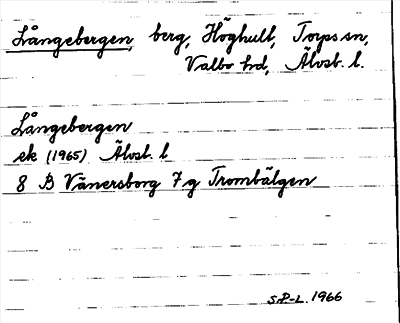 Långebergen, berg, Höghult, Torps sn,
Valbo hd, Älvsb. l.
Långebergen
ek (1965) Älvsb. l
8 B Vänersborg 7 g Trombälgen
S.P-L. 1966